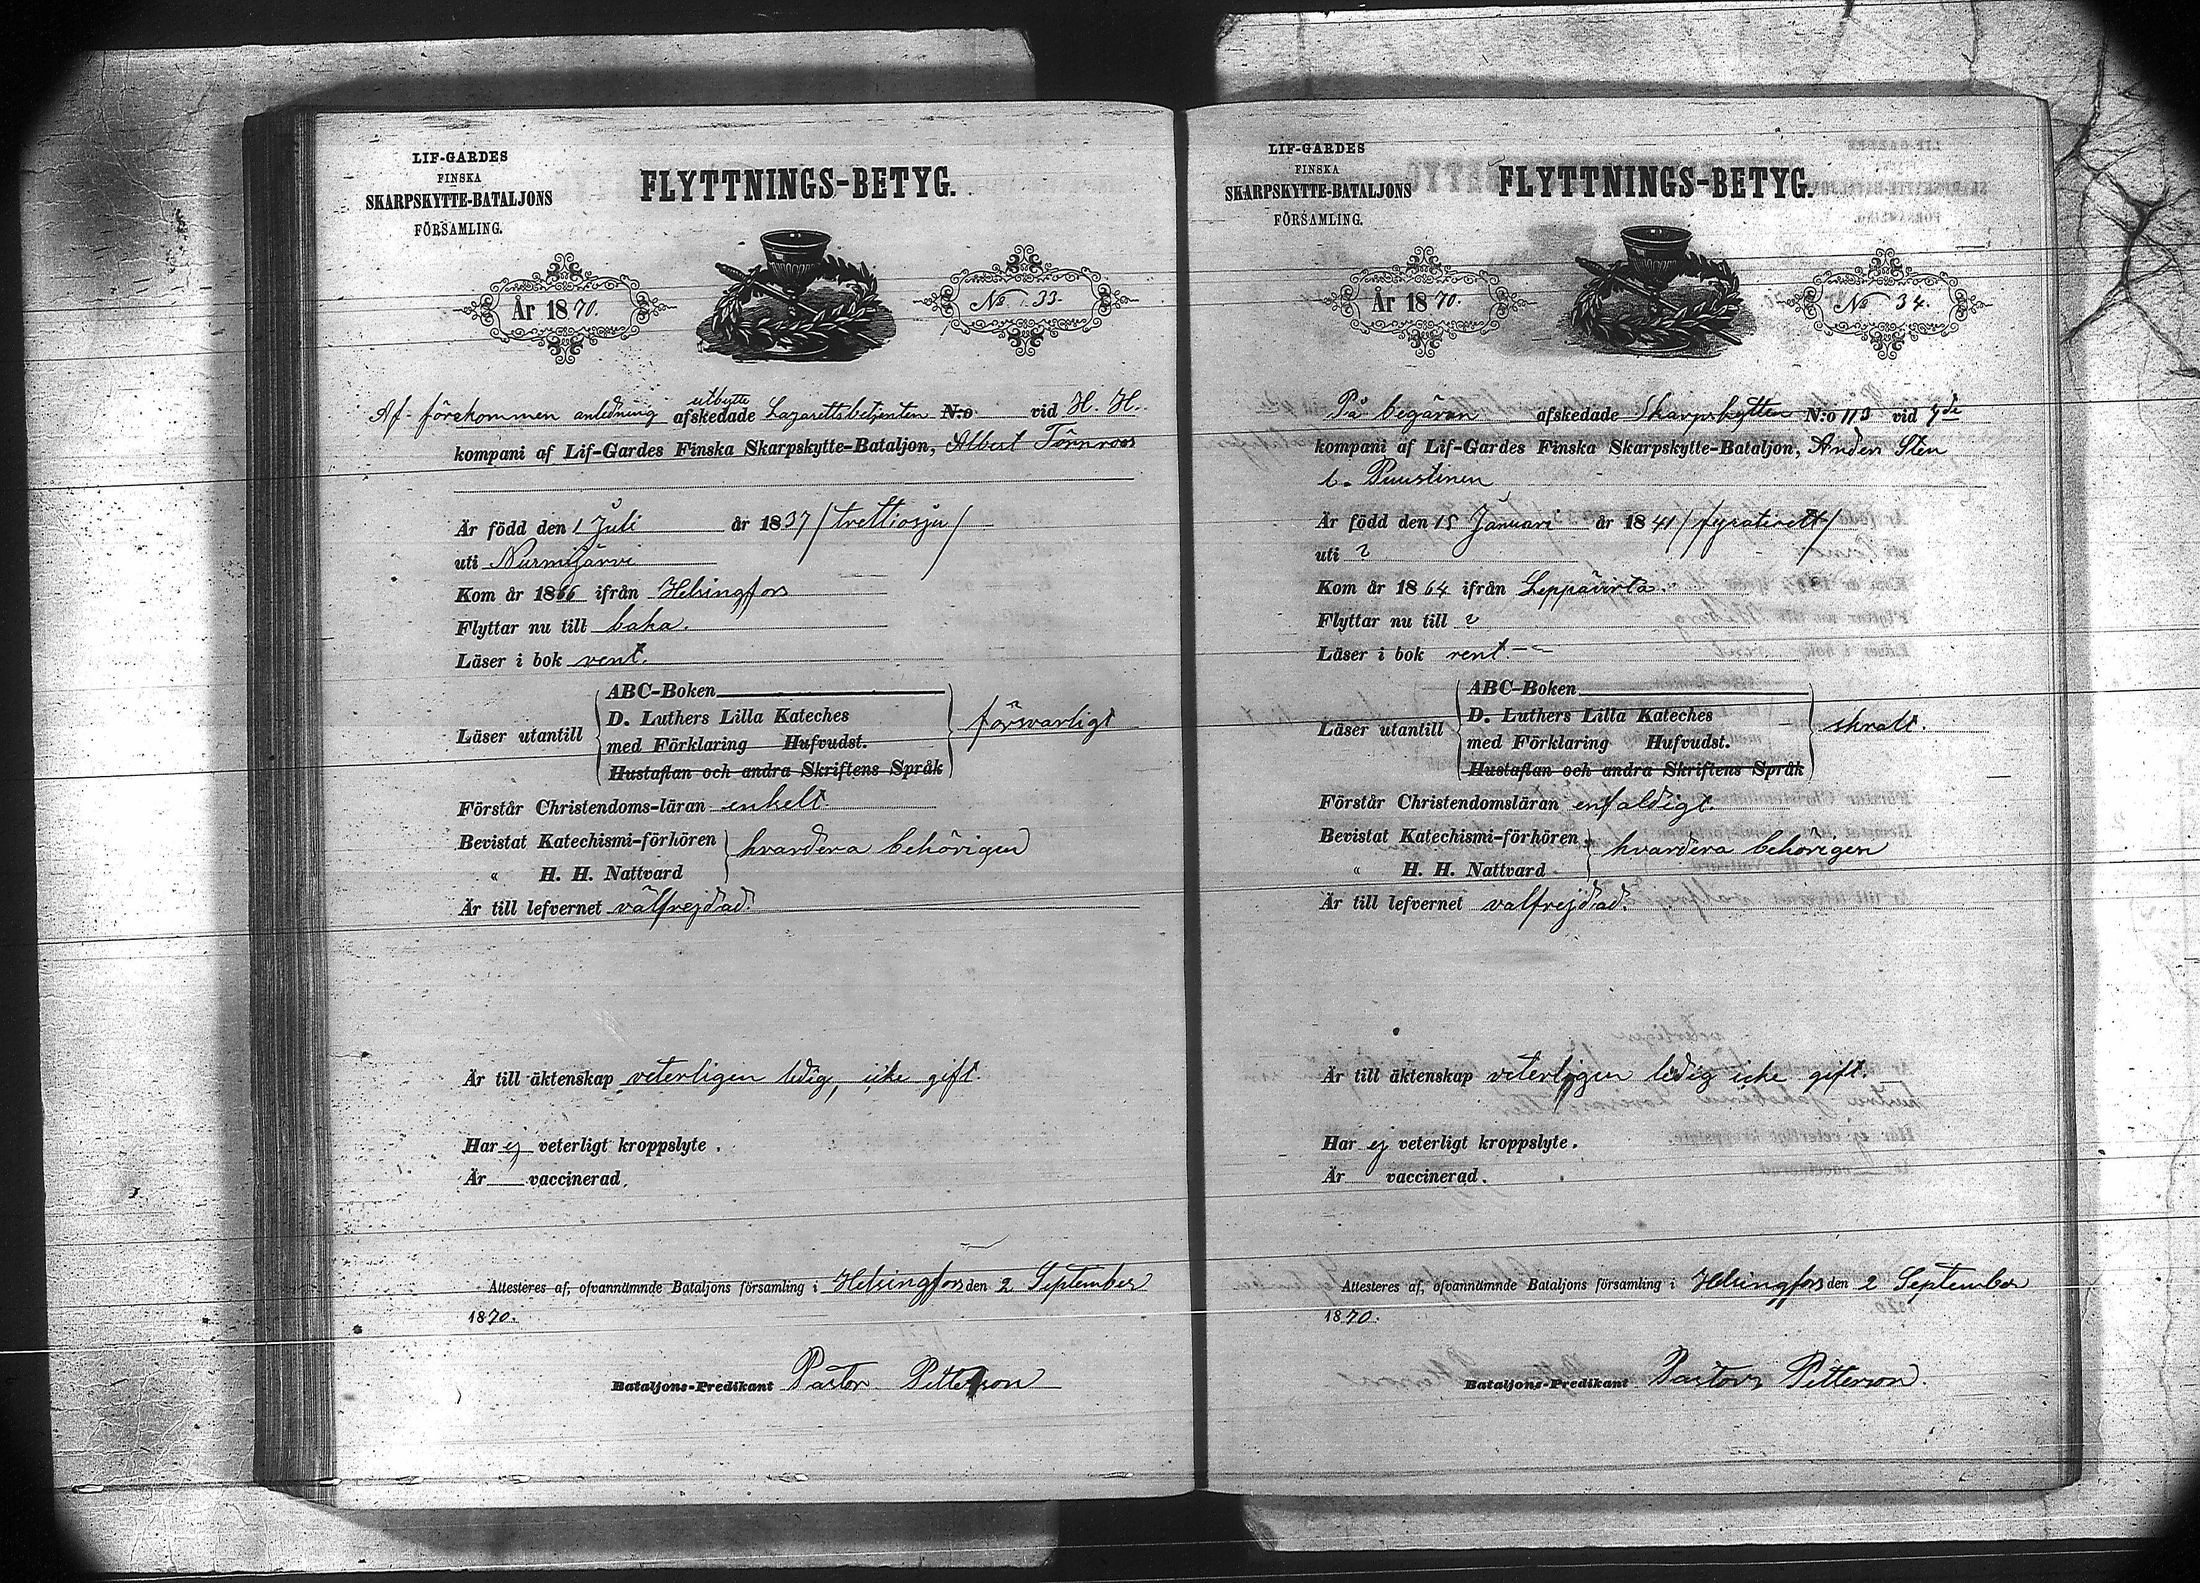 LIF-GARDES
FINSKA
SKARPSKYTTE-BATALJONS
FÖRSAMLING.
FLYTTNINGS-BETYG.
År 1870.
No 33.
utbytte
Af förekommen anledning afskedade Lazarettsbetjenten N:o vid H. H.
kompani af Lif-Gardes Finska Skarpskytte-Bataljon, Albert Törnroos
Är född den 1 Juli år 1837 /trettiosju/
uti Nurmijärvi
Kom år 1866 ifrån Helsingfors
Flyttar nu till baka.
Läser i bok rent.
ABC-Boken
D. Luthers Lilla Kateches
Läser utantill med Förklaring Hufvudst. försvarligt
Hustaflan och andra Skriftens Språk
Förstår Christendoms-läran enkelt.
Bevistat Katechismi-förhören
hvardera behörigen
" H. H. Nattvard
Är till lefvernet välfrejdad.
Är till äktenskap veterligen ledig, icke gift.
Har ej veterligt kroppslyte.
Är vaccinerad.
Attesteres af, ofvannämnde Bataljons församling i Helsingfors den 2 September
1870.
Bataljons-Predikant Pastor Pitterson
LIF-GARDES
FINSKA
SKARPSKYTTE-BATALJONS
FÖRSAMLING.
FLYTTNINGS-BETYG.
År 1870.
No 34.
På begäran afskedade Skarpskytten N:o 113 vid 4de
kompani af Lif-Gardes Finska Skarpskytte-Bataljon, Anders Sten
l. Puustinen
Är född den 15 Januari år 1841 /fyratiett/
uti ?
Kom år 1864 ifrån Leppävirta.
Flyttar nu till ?
Läser i bok rent.
ABC-Boken
D. Luthers Lilla Kateches
Läser utantill med Förklaring Hufvudst. skralt.
Hustaflan och andra Skriftens Språk
Förstår Christendomsläran enfaldigt.
Bevistat Katechismi-förhören
hvardera behörigen
" H. H. Nattvard
Är till lefvernet valfrejdad.
Är till äktenskap veterligen ledig icke gift.
Har ej veterligt kroppslyte.
Är vaccinerad.
Attesteres af, ofvannämnde Bataljons församling i Helsingfors den 2 September
1870.
Bataljons-Predikant Pastor Pitterson.